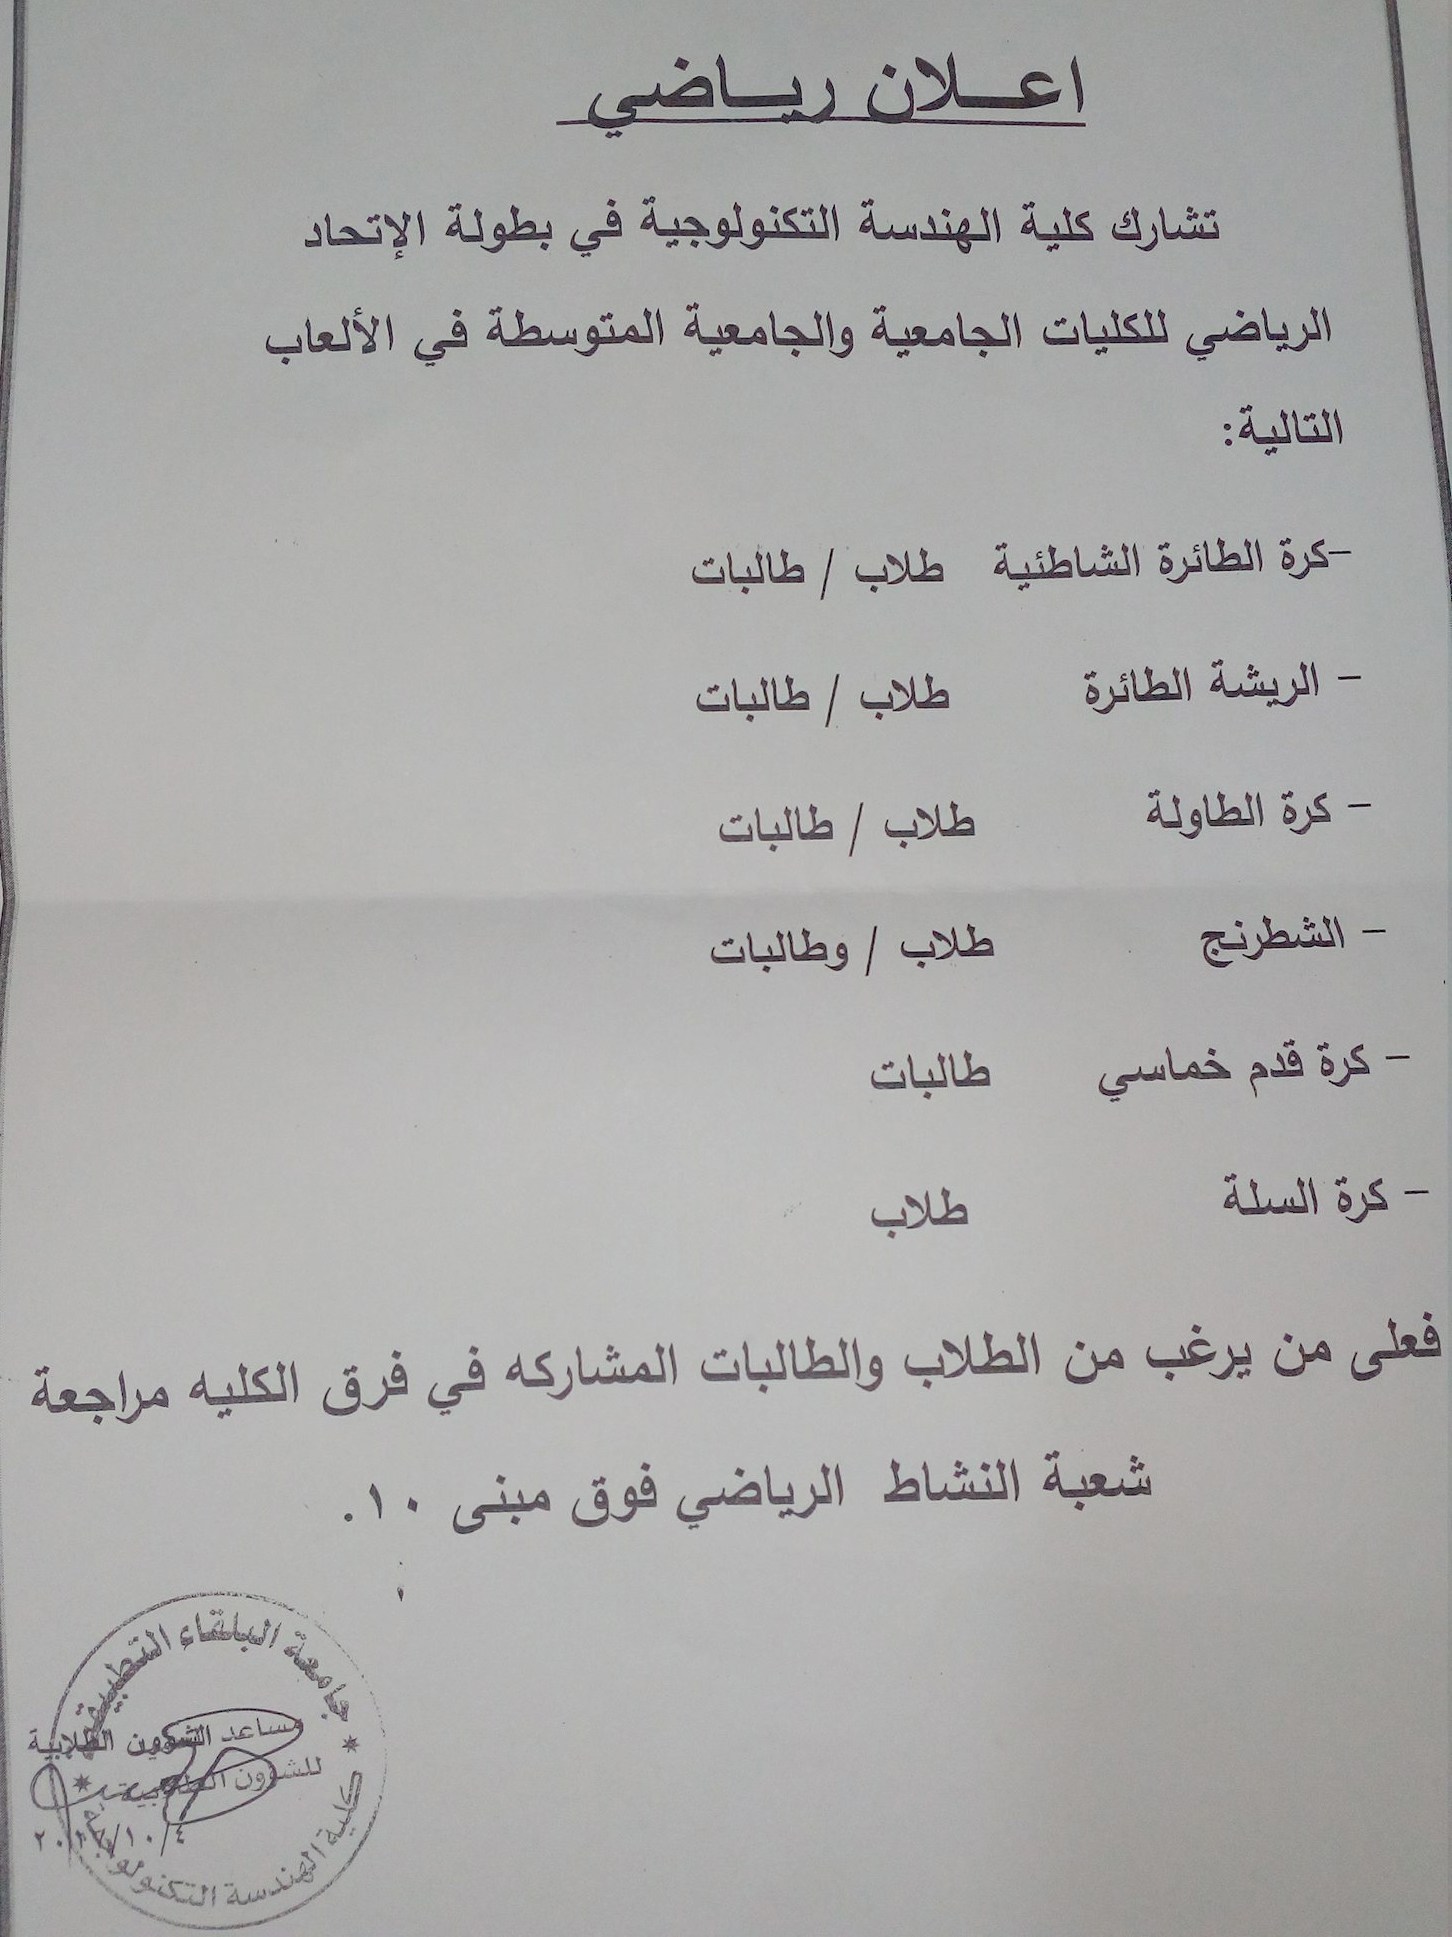 اعـــلان ريـــاضي
تشارك كلية الهندسة التكنولوجية في بطولة الإتحاد
الرياضي للكليات الجامعية والجامعية المتوسطة في الألعاب
التالية:
-كرة الطائرة الشاطئية طلاب / طالبات
- الريشة الطائرة طلاب / طالبات
- كرة الطاولة طلاب / طالبات
- الشطرنج طلاب / وطالبات
- كرة قدم خماسي طالبات
- كرة السلة طلاب
فعلى من يرغب من الطلاب والطالبات المشاركه في فرق الكليه مراجعة
شعبة النشاط الرياضي فوق مبنى ١٠.
جامعة البلقاء التطبيقية
مساعد الشؤون الطلابية
للشؤون الطلابية
كلية الهندسة التكنولوجية